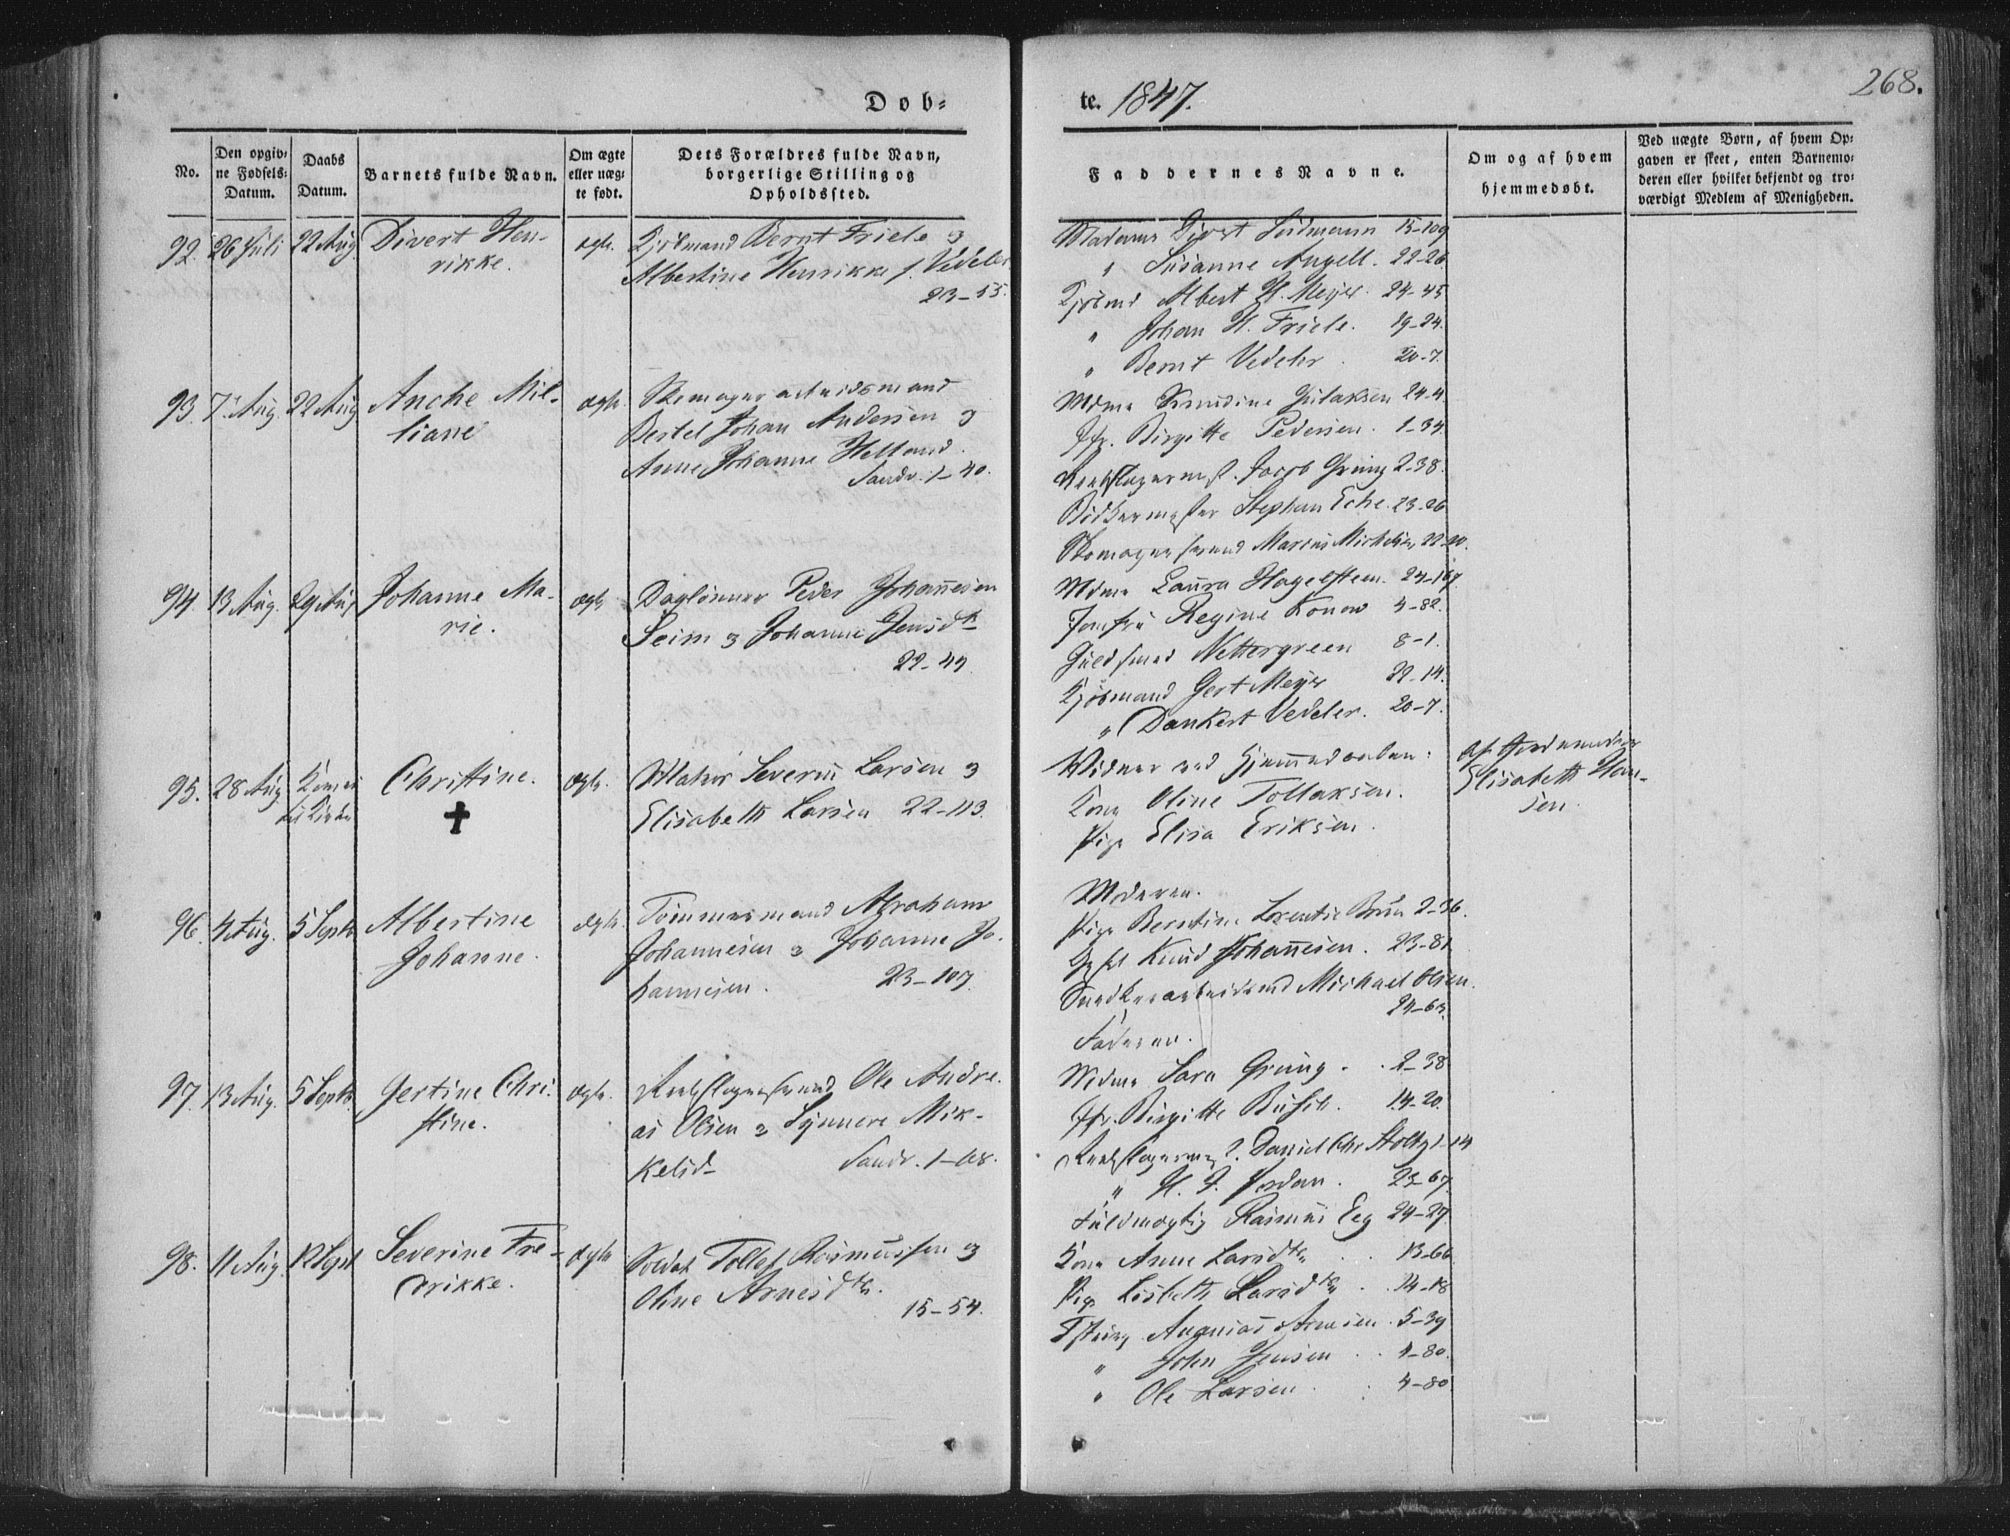 Døb-
te. 1847.
268.
No.
Den opgiv-
ne Fødsels-
Datum.
Daabs
Datum.
Barnets fulde Navn.
Om ægte
eller uæg-
te født.
Dets Forældres fulde Navn,
borgerlige Stilling og
Opholdssted.
Faddernes Navne.
Om og af hvem
hjemmedøbt.
Ved uægte Børn, af hvem Op-
gaven er skeet, enten Barnemo-
deren eller hvilket bekjendt og tro-
værdigt Medlem af Menigheden.
92. 26 Juli 22 Aug Divert Hen-
rikke.
ægte. Kjøbmand Bernt Friele og
Albertine Henrikke f. Vedeler
23-55.
Madame Divert
" Susanne Angell. 22-26
Kjøbmd Albert H. Meyer. 24-45
" Johan H. Friele. 19-24.
" Bernt Vedeler. 20-7.
93. 7. Aug. 22 Aug Anche Mil-
liane
ægte. Skomagerarbeidsmand
Bertel Johan Andersen og
Anne Johanne Helland.
Sandv. 1-40.
Mdme Gulaksen 24-4
Jfr. Birgitte Pedersen. 1-34.
Reebslagermst. Jacob Grung 2-38.
Bødkermester Stephan Eche. 23-26
Skomagersvend Marius Michelsen 22-20.
94. 13 Aug. 29 Aug Johanne Ma-
rie.
ægte Daglønner Peder Johannesen
Seim og Johanne Jensdtr
22-49
Mdme Laura Hagelsteen. 24-167.
Jomfru Regine Konow 4-82.
Guldsmed Nettergreen 8-1.
Kjøbmand Gert Meyer 22-14.
" Dankert Vedeler. 20-7.
95. 28 Aug Kom ei
til Kirke
Christine.
✝
ægte. Matros Severin Larsen og
Elisabeth Larsen 22-113.
Vidner ved Hjemmedaaben:
Kone Oline Tollaksen.
Pige Elisa Eriksen.
af Jordemoder
Elisabeth Han-
sen.
96. 4 Aug. 5 Septb Albertine
Johanne.
ægte. Tømmermand Abraham
Johannesen og Johanne Jo-
hannesen. 23-107.
Moderen.
Pige Berntine Lorentze Brun 2-36.
Gesel Knud Johannesen. 23-81
Snedkerarbeidsmd Michael Olsen.
24-63.
Faderen.
97. 13 Aug. 5 Septb. Gertine Chri-
stine.
ægte. Reebslagersvend Ole Andre-
as Olsen og Synneve Mik-
kelsd- Sandv. 1-68.
Mdme Sara Grung. 2-38
Jfr. Birgitte Busch. 14-20.
Reebslagermst. Daniel Chr Stoltz 1-14
" H. J. Jordan. 23-67.
Fuldmægtig Rasmus Eeg 24-27.
98. 11 Aug. 12 Sept Severine Fre-
drikke.
ægte Soldat Tollef Rasmussen og
Oline Arnesdtr.
15-54.
Kone Anne Larsdtr 13-66
Pige Lisbeth Larsdtr. 14-18
Ananias Arnesen. 5-39
" John Jensen. 4-80.
" Ole Larsen. 4-80